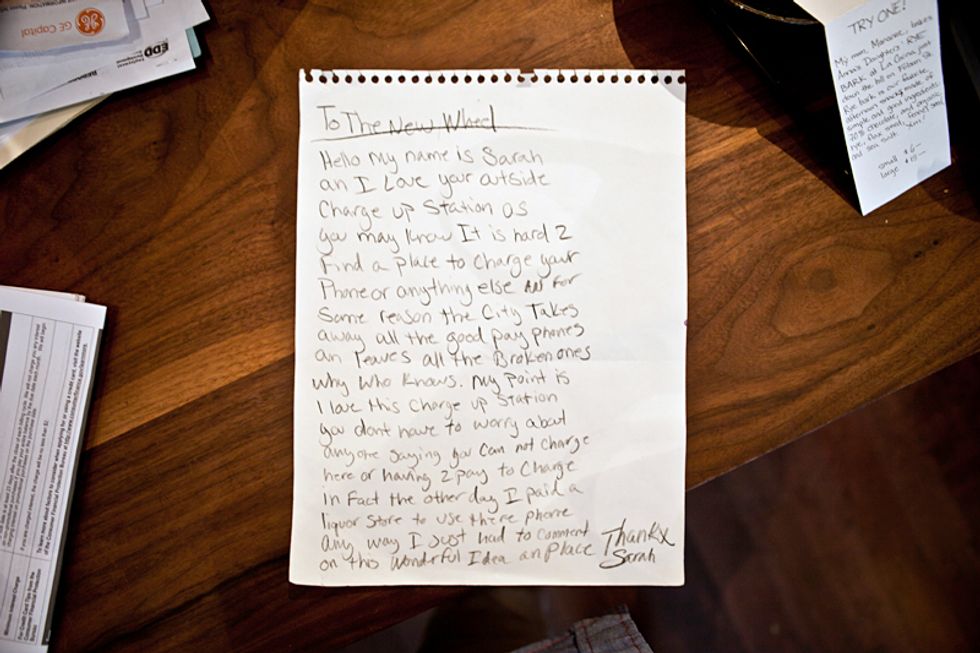 GE Capital
EDD
To The New Wheel
Hello My name is Sarah
an I Love your outside
Charge up Station as
you may know It is hard 2
Find a place to charge your
Phone or anything else for
Some reason the City Takes
away all the good pay phones
an leaves all the Broken ones
why who knows. My Point is
I love this Charge up Station
you dont have to worry about
anyone saying you Can not charge
here or having 2 pay to Charge
in Fact the other day I paid a
liquor Store to use there phone
any way I Just had to comment
on this Wonderful Idea an place
Thankx
Sarah
TRY ONE!
My mom, bakes
Anna's Daughters' RYE
BARK at La Cocina just
down the hill on Folsom St.
Rye bark is our favorite
afternoon snack, made of
simple and good ingredients:
70% chocolate, and organic
rye, flax seed, fennel seed,
and sea salt. Yum!
small $6—
large